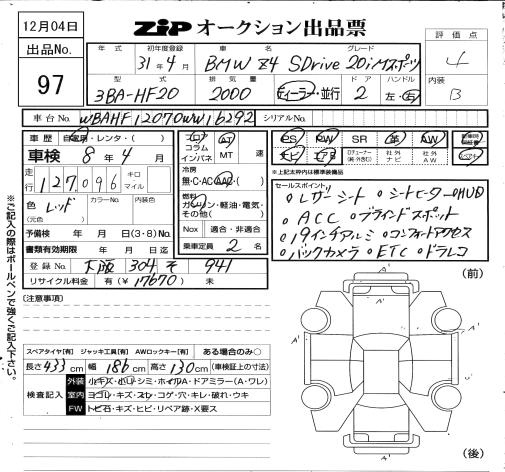 12月04日
ZIP オークション出品票
出品No.
97
年式
初年度登録
31年4月
車名
BMW Z4
グレード
SDrive 20i Mスポーツ
評価点
4
型式
3BA-HF20
排気量
2000
ディーラー・並行
ドア
2
ハンドル
左・右
内装
B
車台No.
WBAHF12070WW16292
シリアルNo.
車歴
自家用・レンタ・( )
車検 8年4月
走行
127,096
キロ
マイル
色
(元色)
レッド
カラーNo.
内装色
予備検 年 月 日(3・8)No.
書類有効期限 年 月 日迄
登録No. 大阪 304 そ 941
リサイクル料金 有(¥17670) 未
フロア
コラム
インパネ
AT
MT
速
冷房
無・C・AC・AAC・( )
燃料
ガソリン・軽油・電気・
その他( )
Nox 適合・非適合
乗車定員 2名
PS PW SR 革 AW
ナビ エアB
TVチューナー
社外ナビ
社外AW
※上記太枠内は標準装備品
セールスポイント
○レザーシート ○シートヒーター○HUD
○ACC ○ブラインドスポット
○19インチアルミ ○コンフォートアクセス
○バックカメラ ○ETC ○ドラレコ
※ご記入の際はボールペンで強くご記入下さい。
(注意事項)
(前)
A'
A'
A'
A'
スペアタイヤ[有] ジャッキ工具[有] AWロックキー[有] ある場合のみ○
長さ 433cm 幅 186cm 高さ 130cm (車検証上の寸法)
検査記入
外装 小キズ・小凹・シミ・ホイルA・ドアミラー(A・ワレ)
室内 ヨゴレ・キズ・スレ・コゲ・穴・キレ・破れ・ウキ
FW トビ石・キズ・ヒビ・リペア跡・X要ス
(後)